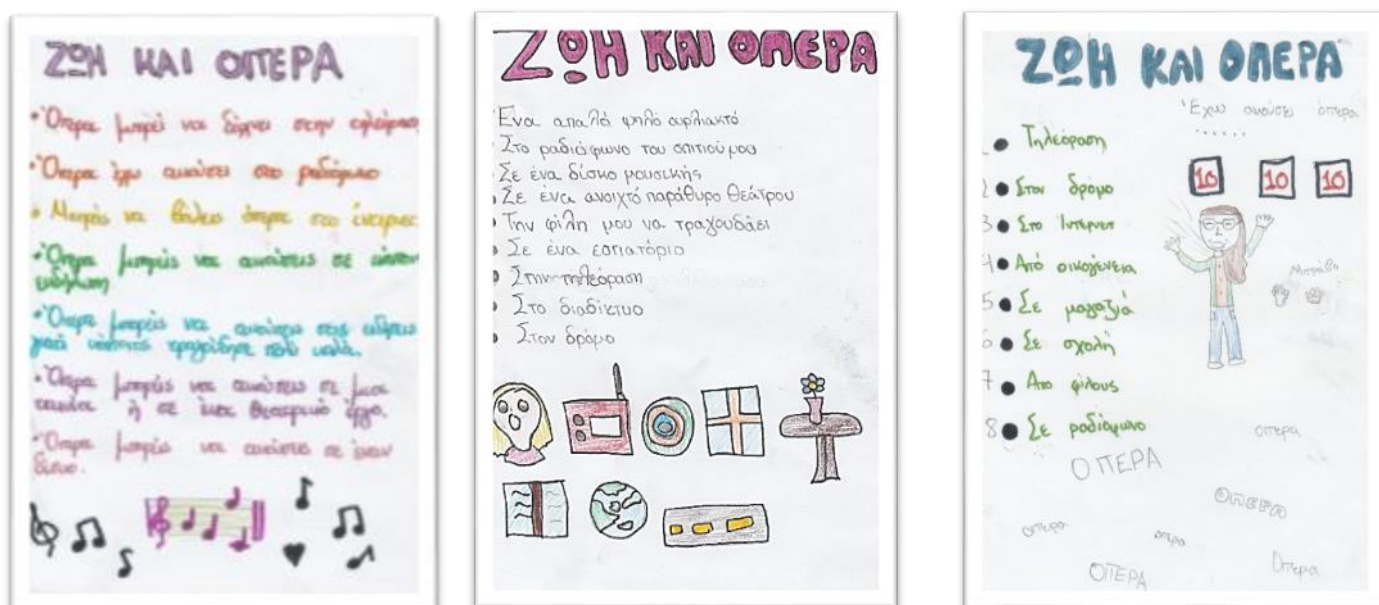 ΖΩΗ ΚΑΙ ΟΠΕΡΑ
•Όπερα μπορεί να δείχνει στην τηλεόραση
•Όπερα έχω ακούσει στο ραδιόφωνο
• Μπορείς να βάλεις όπερα στο ίντερνετ
•Όπερα μπορείς να ακούσεις σε κάποια
εκδήλωση
•Όπερα μπορείς να ακούσεις στις ειδήσεις
γιατί κάποιος τραγούδησε πολύ καλά.
•Όπερα μπορείς να ακούσεις σε μια
ταινία ή σε ένα θεατρικό έργο.
•Όπερα μπορείς να ακούσεις σε έναν
δίσκο.
ΖΩΗ ΚΑΙ ΟΠΕΡΑ
Ένα απαλό ψηλό ουρλιακτό
Στο ραδιόφωνο του σπιτιού μου
Σε ένα δίσκο μουσικής
Σε ένα ανοιχτό παράθυρο θεάτρου
Την φίλη μου να τραγουδάει
Σε ένα εστιατόριο
Στην τηλεόραση
Στο διαδίκτυο
Στον δρόμο
ΖΩΗ ΚΑΙ ΟΠΕΡΑ
Έχω ακούσει όπερα
......
● Τηλεόραση
2 ● Στον δρόμο
3 ● Στο Ίντερνετ
4 ● Από οικογένεια
5 ● Σε μαγαζιά
6 ● Σε σχολή
7 ● Απο φίλους
8 ● Σε ραδιόφωνο
10 10 10
Μπράβο
όπερα
ΟΠΕΡΑ
ΟΠΕΡΑ
οπερα
οπερα
ΟΠΕΡΑ
Όπερα